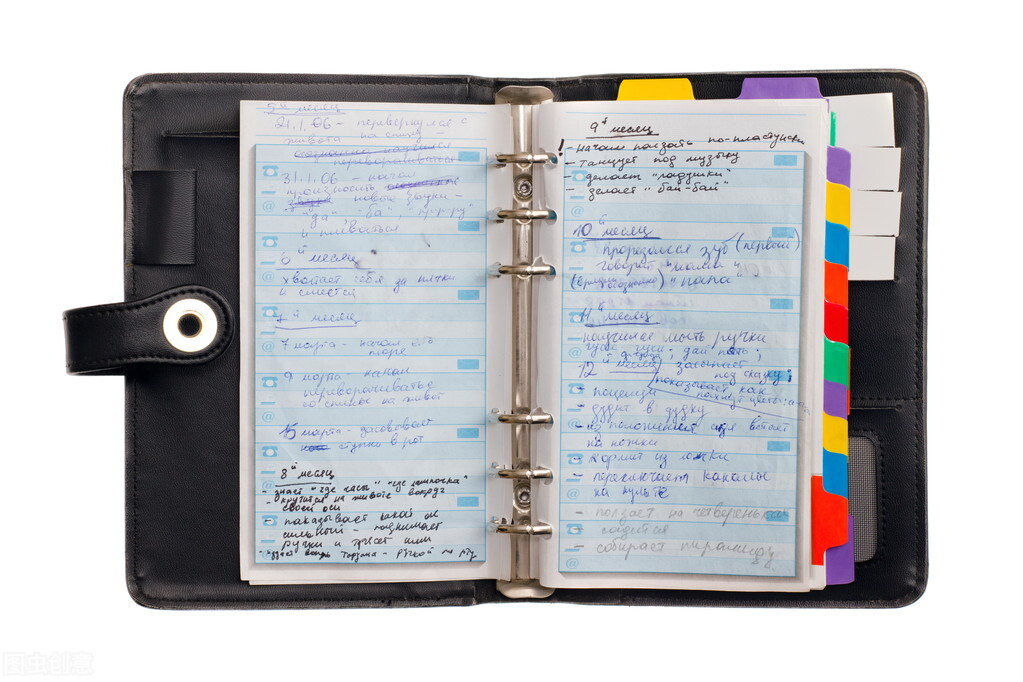 5й месяц
21.1.06 - перевернулся с
живота на спину -
переворачиваться
31.1.06 - начал
произносить
новые звуки -
"да", "ба",
и плеваться
6й месяц
хватает себя за пятки
и смеется
7й месяц
7 марта - начал есть
пюре
9 марта - начал
переворачиваться
со спины на живот
15 марта - засовывает
ступни в рот
8й месяц
- знает "где часы" "где лампочка"
- крутится на животе вокруг
своей оси
- показывает какой он
сильный - поднимает
ручки и трясет ими
9й месяц
! - начал ползать по-пластунски
- танцует под музыку
- делает "ладушки"
- делает "бай-бай"
10й месяц
прорезался зуб (первый)
говорит "мама"
"папа"
11й месяц
научился мыть ручки
гуси гуси; дай пять;
12й месяц засыпает под сказку;
показывает как
пахнут цветочки
- поцелуи
- дудит в дудку
- из положения сидя встает
на ножки
- кормит из ложки
- переключает каналы
на пульте
- ползает на четвереньках
- садится
- собирает пирамидку
图虫创意